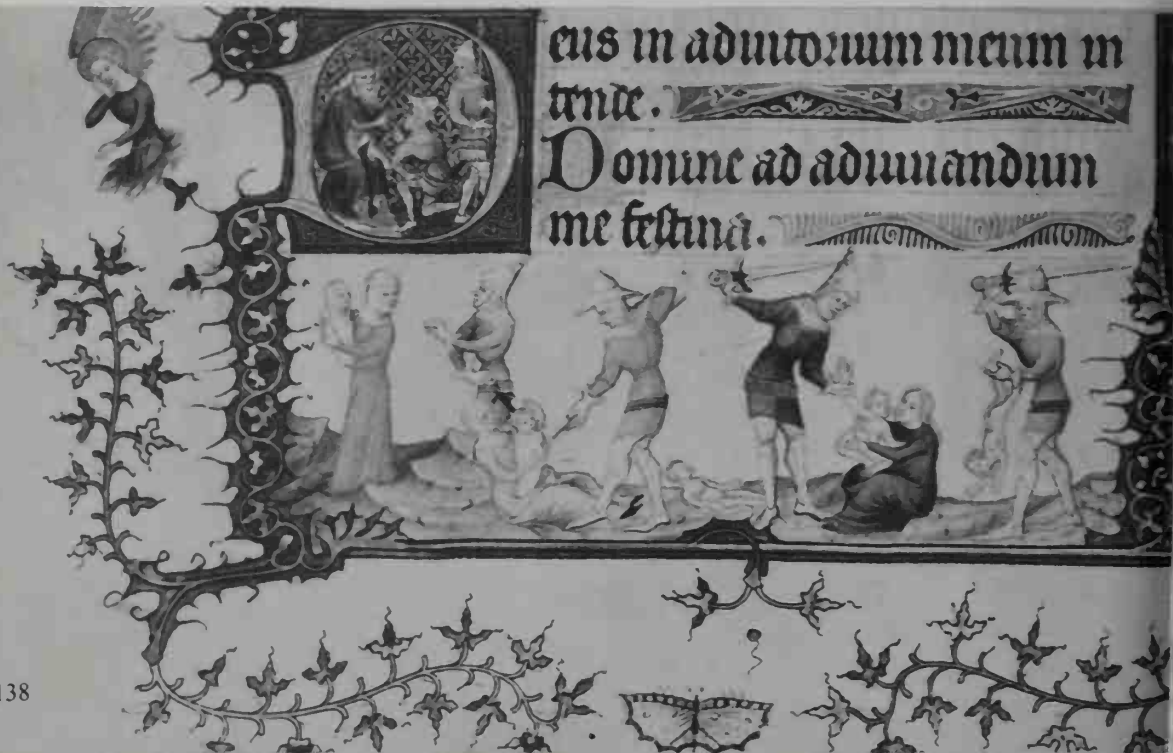 Deus in adiutorium meum in
tende.
Domine ad adiuuandum
me festina.
138